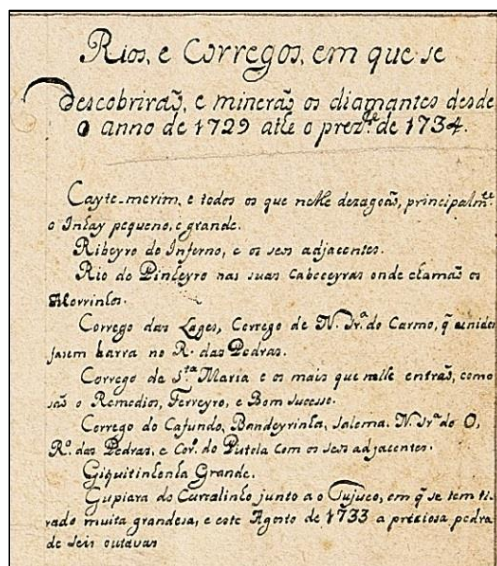 Rios, e Corregos, em que se
descobrirão, e minerão os diamantes desde
o anno de 1729 athe o prez.te de 1734.
Cayte-merim, e todos os que nelle dezagoão, principalm.te
o Inhay pequeno, e grande.
Ribeyro do Inferno, e os seus adjacentes.
Rio do Pinheyro nas suas cabeceyras onde chamão os
Morrinhos.
Corrego das Lages, Corrego de N. Sr.a do Carmo, q̃ unidos
fasem barra no R. das Pedras.
Corrego de S.ta Maria e os mais que nelle entrão, como
são o Remedios, Ferreyro, e Bom sucesse.
Corrego do Cafundo, Bandeyrinha, Salema. N. Sr.a do O,
R.o das Pedras, e Cor.o do Putola com os seus adjacentes.
Giquitinhonha Grande.
Gupiara do Curralinho junto a o Tujuco, em q̃ se tem ti-
rado muita grandesa, e este Agosto de 1733 a preciosa pedra
de seis outavas